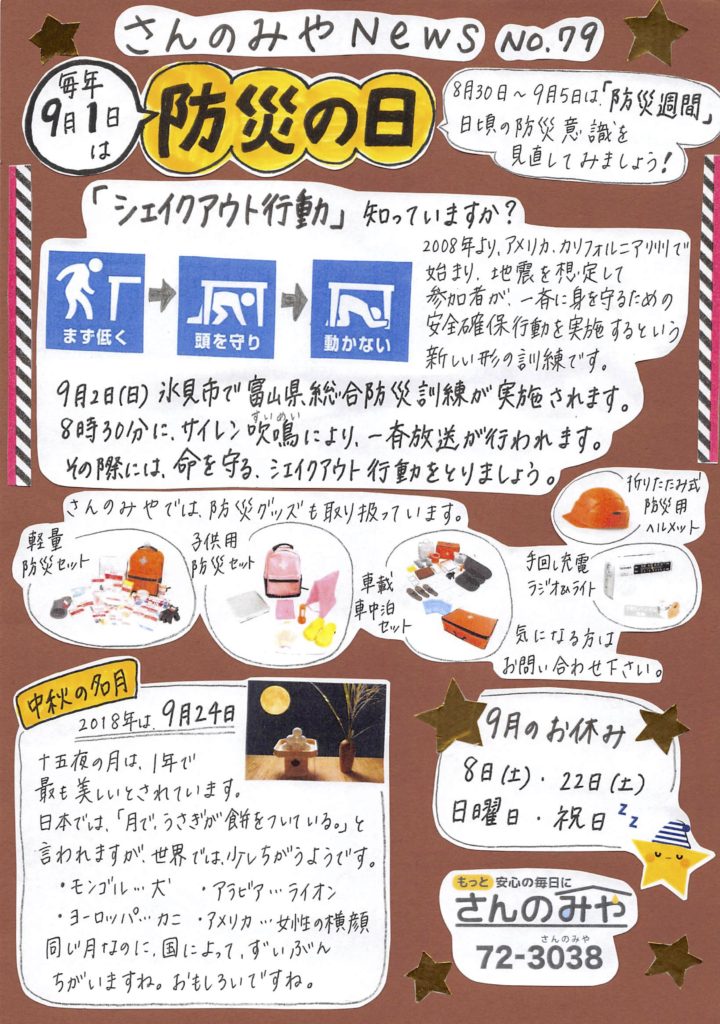 さんのみやNews No.79
毎年
9月1日
は
防災の日
8月30日～9月5日は、「防災週間」
日頃の防災意識を
見直してみましょう!
「シェイクアウト行動」知っていますか?
まず低く
頭を守り
動かない
2008年より、アメリカ、カリフォルニア州で
始まり、地震を想定して
参加者が、一斉に身を守るための
安全確保行動を実施するという
新しい形の訓練です。
9月2日(日)氷見市で富山県総合防災訓練が実施されます。
すいめい
8時30分に、サイレン吹鳴により、一斉放送が行われます。
その際には、命を守る、シェイクアウト行動をとりましょう。
さんのみやでは、防災グッズも取り扱っています。
折りたたみ式
防災用
ヘルメット
軽量
防災セット
子供用
防災セット
車載
車中泊
セット
手回し充電
ラジオ&ライト
気になる方は
お問い合わせ下さい。
中秋の名月
2018年は、9月24日
十五夜の月は、1年で
最も美しいとされています。
日本では、「月で、うさぎが餅をついている。」と
言われますが、世界では、少しちがうようです。
・モンゴル…犬 ・アラビア…ライオン
・ヨーロッパ…カニ ・アメリカ…女性の横顔
同じ月なのに、国によって、ずいぶん
ちがいますね。おもしろいですね。
9月のお休み
8日(土)・22日(土)
日曜日・祝日
zz
もっと 安心の毎日に
さんのみや
さんのみや
72-3038